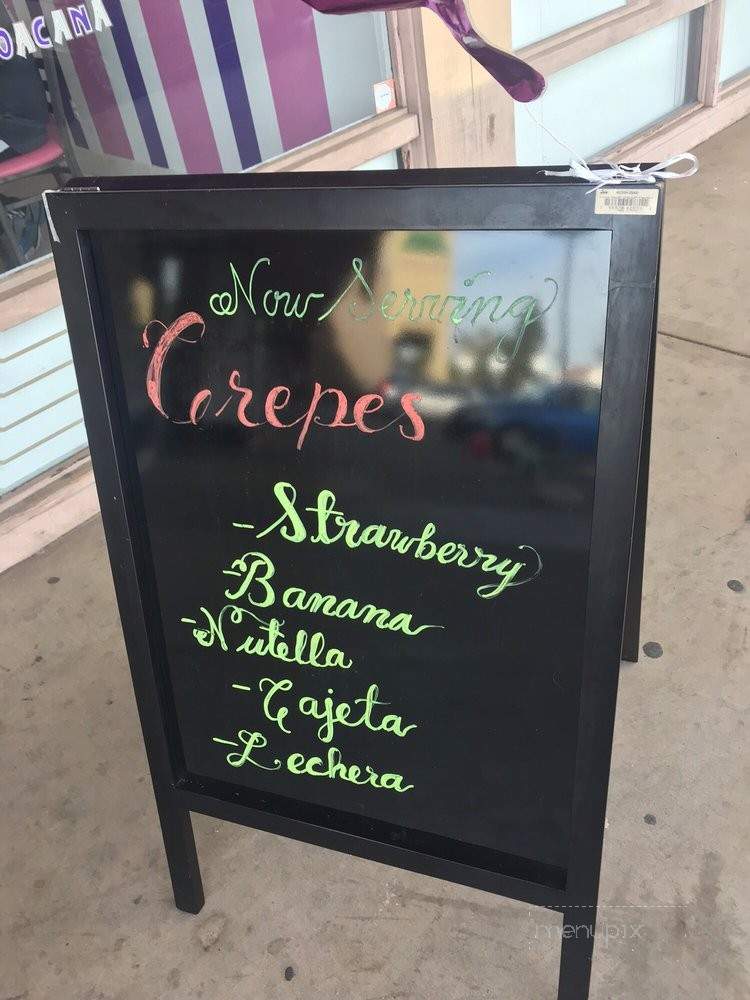 OACANA
Now Serving
Crepes
- Strawberry
- Banana
- Nutella
- Cajeta
- Lechera
menupix